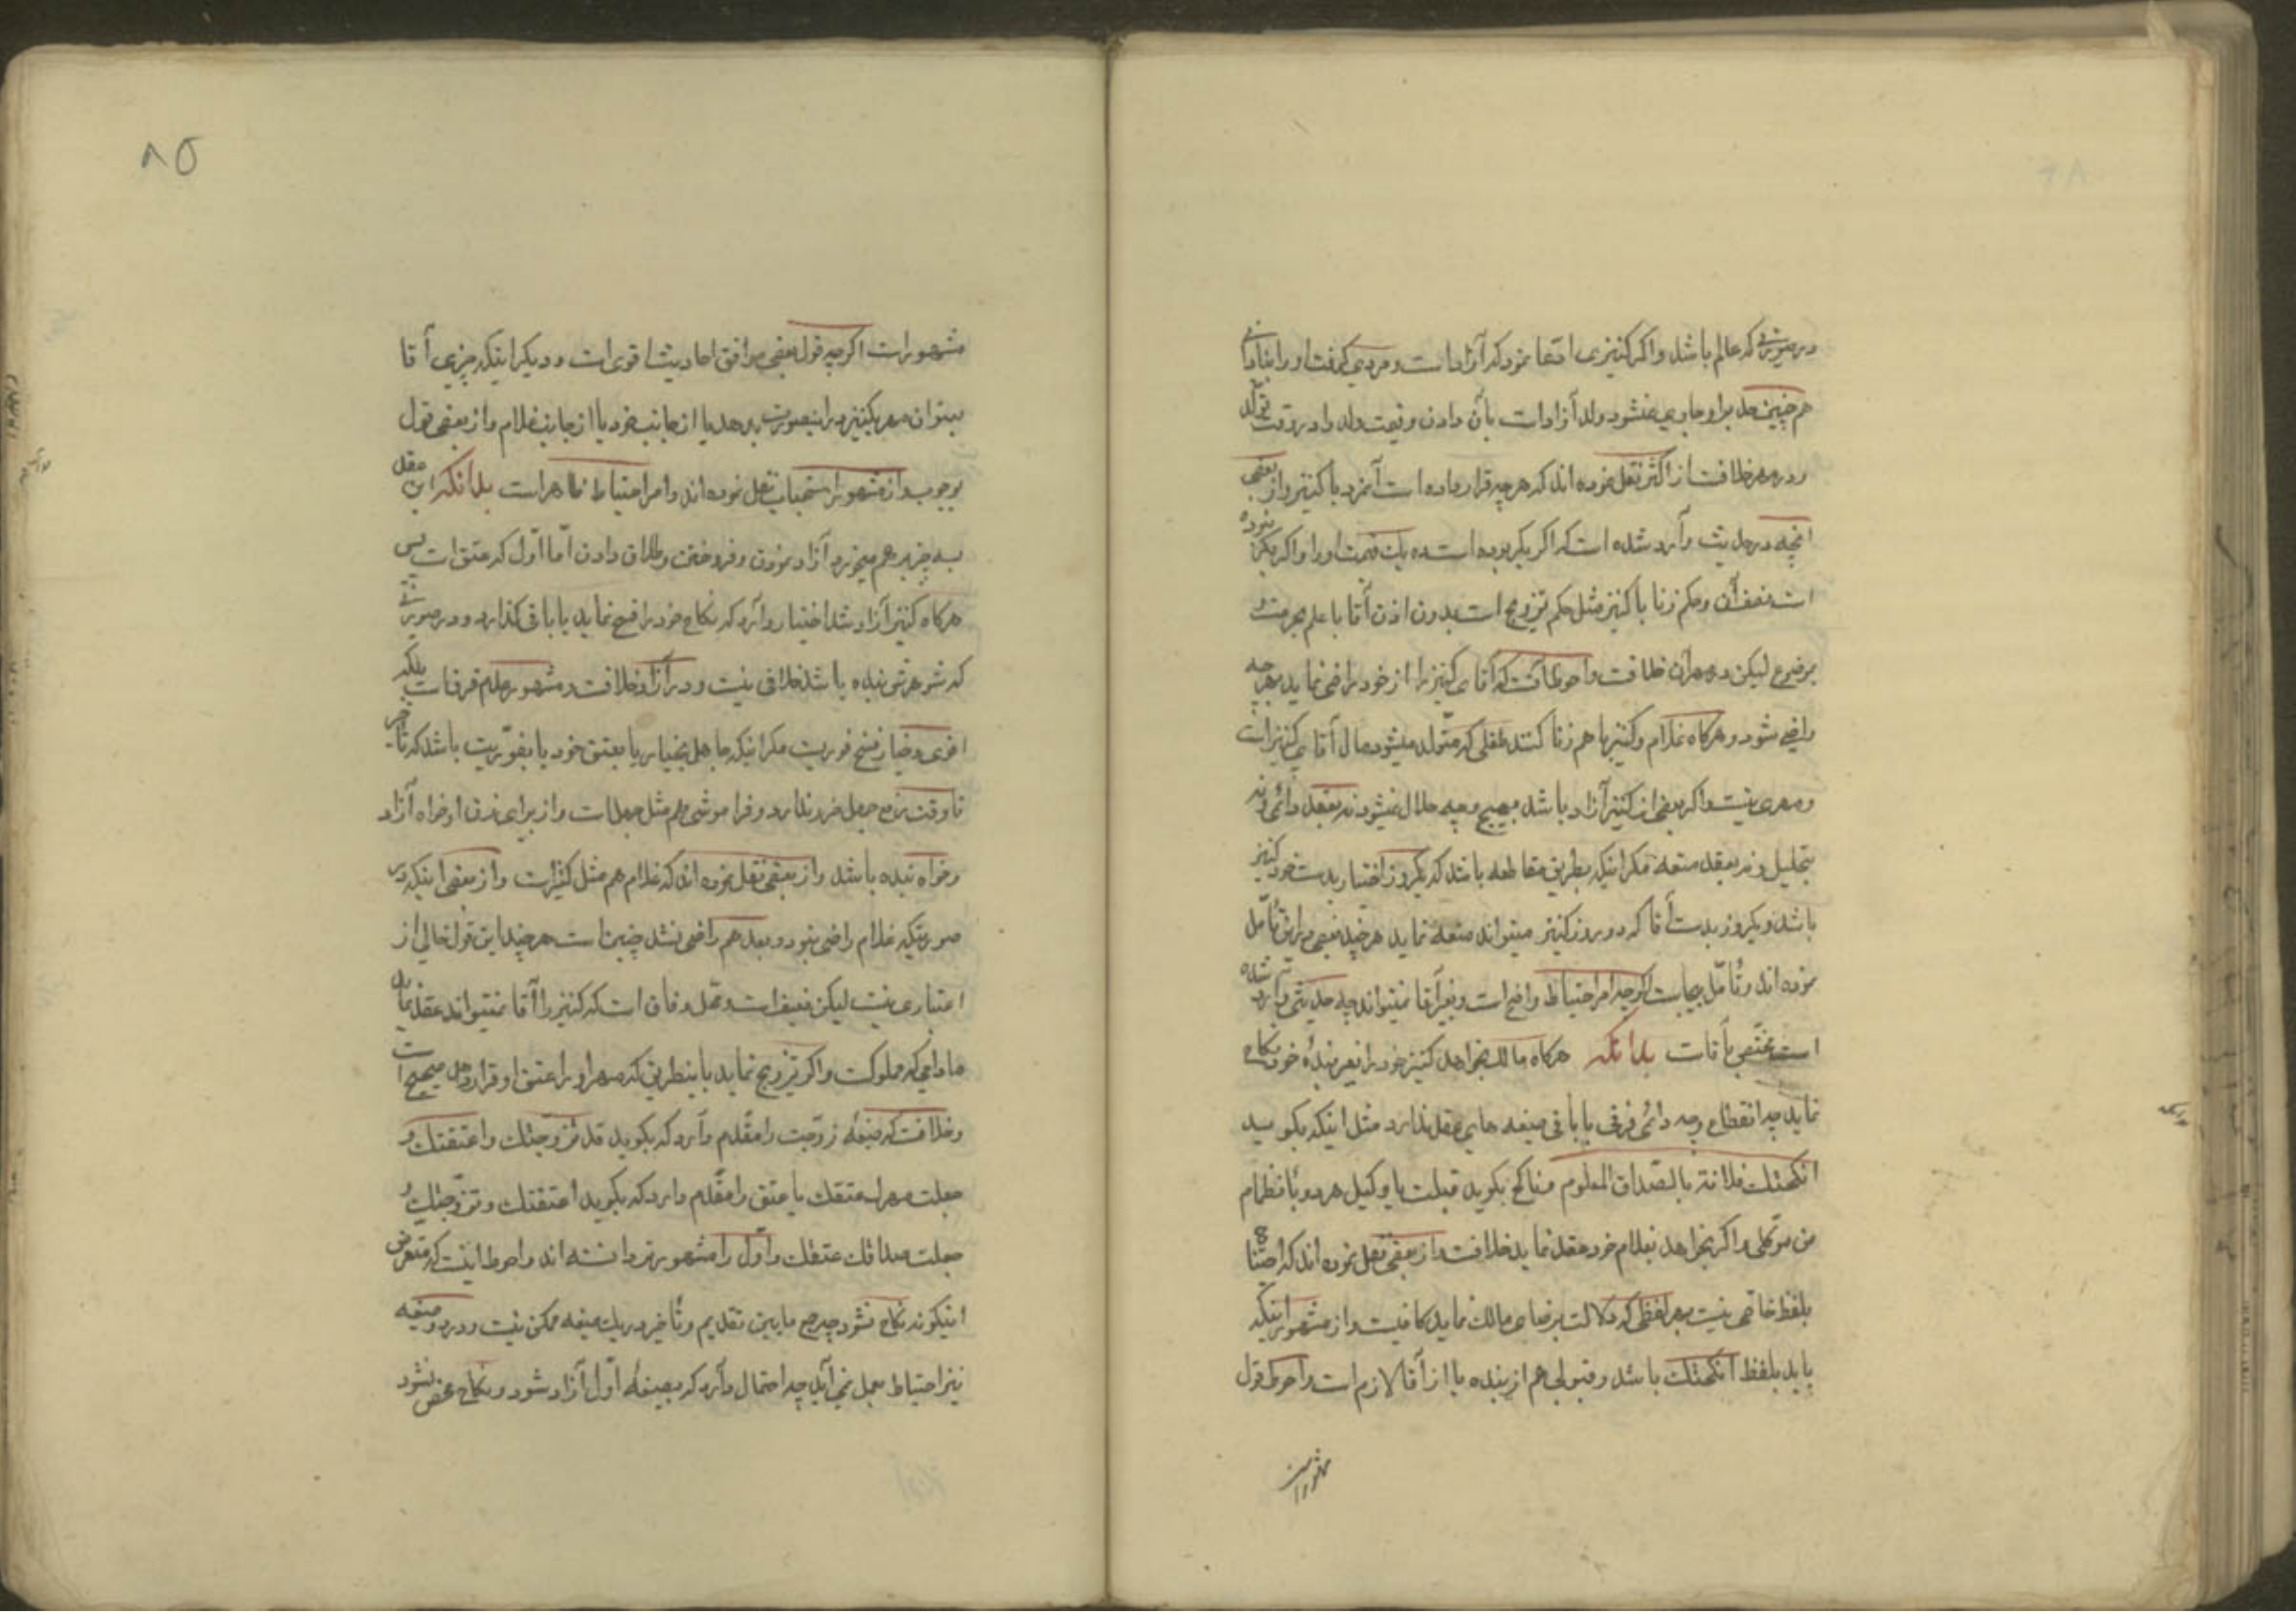 در صورتی که عالم باشد و اگر کنیزی ادعا نمود که آزاد است و مردی گرفت او را بنادانی
هم چنین حد بر او جاری نمیشود ولد آزاد است بآن دادن و قیمت ولد را در وقت تولد
و در مهر خلافست از اکثر نقل نموده اند که هر چه قرار داده است آنمرد با کنیز و از بعضی
انچه در حدیث وارد شده است که اگر بکر بوده است ده یک قیمت او را و اگر بکر نبوده
است نصف آن و حکم زنا با کنیز مثل حکم تزویج است بدون اذن آقا با علم بحرمت و
موضوع لیکن در مهر آن خلافست و احوط آنست که آقای کنیز را از خود راضی نماید بهر چه
راضی شود و هر کاه غلام و کنیز با هم زنا کنند طفلی که متولد میشود مال آقای کنیز است
و مهری نیست و اگر بعضی از کنیز آزاد باشد بهیچ وجه حلال نمیشود نه بعقد دائمی و نه
بتحلیل و نه بعقد متعه مگر اینکه بطریق مقاطعه باشد که یکروز اختیار بدست خود کنیز
باشد و یکروز بدست آقا که در روز کنیز میتواند متعه نماید هر چند بعضی در این تأمل
نموده اند و تأمل بیجاست اگر چه امر احتیاط واضح است و بغیر آقا نمیتواند چه حدیثی که وارد شده
است مختص بآقاست بدانکه هر کاه مالک بخواهد کنیز خود را بغیر بندۀ خود نکاح
نماید چه انقطاع و چه دائمی فرقی با باقی صیغه های عقد ندارد مثل اینکه بکوید
انکحتک فلانة بالصداق المعلوم و ناکح بکوید قبلت یا وکیل هر دو بانضمام
من موکلی و اگر بخواهد بغلام خود عقد نماید خلافست از بعضی نقل نموده اند که احتیاج
بلفظ خاصی نیست بهر لفظی که دلالت بر رضای مالک نماید کافیست و از مشهور اینکه
باید بلفظ انکحتک باشد و قبولی هم از بنده یا از آقا لازم است و احوط قول
مشهور است
۸۵
مشهور است اگر چه قول بعضی موافق احادیث اقوی است و دیگر اینکه چیزی آقا
بعنوان مهر بکنیز در اینصورت بدهد یا از جانب خود یا از جانب غلام و از بعضی قول
بوجوب و از مشهور استحباب نقل نموده اند و امر احتیاط ظاهر است بدانکه این عقد
بسه چیز بر هم میخورد آزاد نمودن و فروختن و طلاق دادن اما اول که عتق است پس
هر کاه کنیز آزاد شد اختیار دارد که نکاح خود را فسخ نماید یا باقی گذارد و در صورتی
که شوهرش بنده باشد خلافی نیست و در آزاد خلافست و مشهور عدم فرق است بلکه
اقوی و خیار فسخ فوریست مگر اینکه جاهل بخیار یا بعتق خود یا بفوریت باشد که تأخیر
تا وقت رفع جهل ضرر ندارد و فراموشی هم مثل جهل است و از برای زن او خواه آزاد
و خواه بنده باشد و از بعضی نقل نموده اند که غلام هم مثل کنیز است و از بعضی اینکه در
صورتیکه غلام راضی نبود و بعد هم راضی نشد چنین است هر چند این قول خالی از
اعتباری نیست لیکن ضعیف است و محل وفاق است که کنیز را آقا نمیتواند عقد نماید
مادامی که مملوکست و اگر تزویج نماید باینطریق که مهر او را عتق او قرار دهد صحیح است
و خلافست که صیغه زوجیت را مقدم دارد که بکوید قد تزوجتک و اعتقتک و
جعلت مهرک عتقک یا عتق را مقدم دارد که بکوید اعتقتک و تزوجتک و
جعلت صداقک عتقک و اول را مشهورتر دانسته اند و احوط اینست که متعرض
اینکونه نکاح نشود چه جمع مابین تقدیم و تأخیر در یک صیغه ممکن نیست و در دو صیغه
نیز احتیاط بعمل نمی آید چه احتمال دارد که بصیغۀ اول آزاد شود و نکاح محض نشود